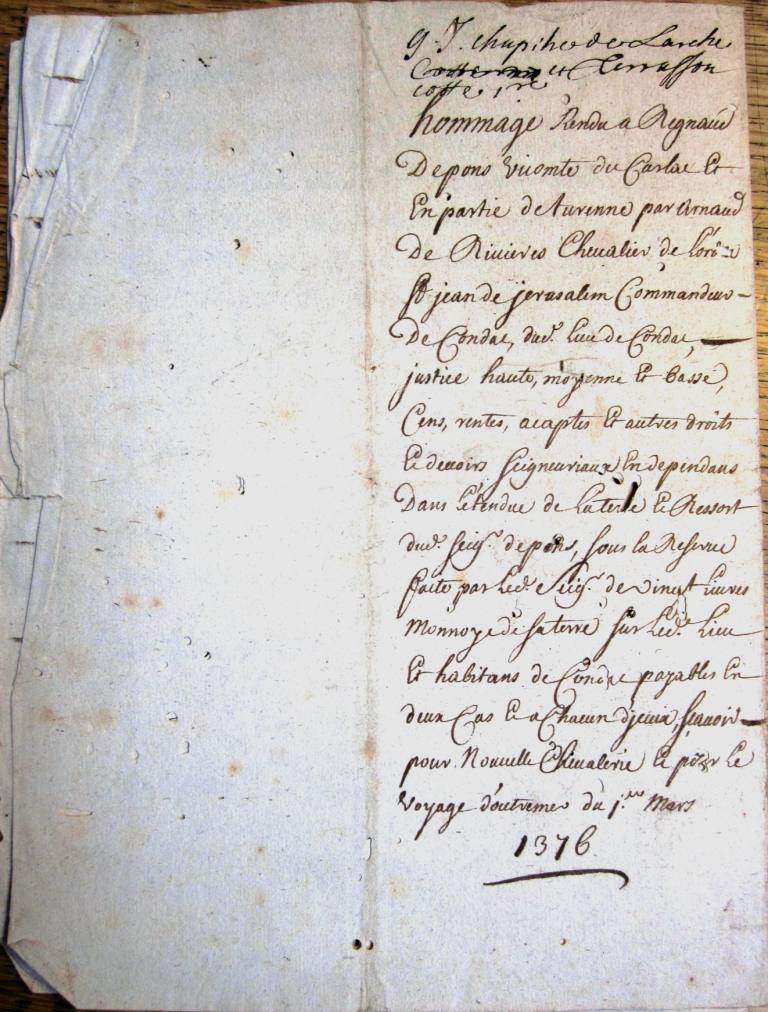 9. J. chapitre de Larche
et Terrasson
cotte 1re
hommage Rendu a Regnaud
De pons Vicomte du Carlac Et
En partie de turenne par Arnaud
De Rivieres Chevalier de l'or
St jean de jerusalem Commandeur
De Condac, dud. lieu de Condac,
justice haute, moyenne Et Basse,
Cens, rentes, acaptes Et autres droits
Et devoirs seigneuriaux En dependans
Dans l'étendue de la terre Et Ressort
dud. seigr. de pons, sous la Reserve
faite par led. seigr. de vingt livres
Monnoye de sa terre sur led. Lieu
Et habitans de Condac payables En
deux Cas Et a Chacun d'jceux, scavoir
pour Nouvelle Chevalerie Et pour Le
Voyage d'outremer du 1.er Mars
1376